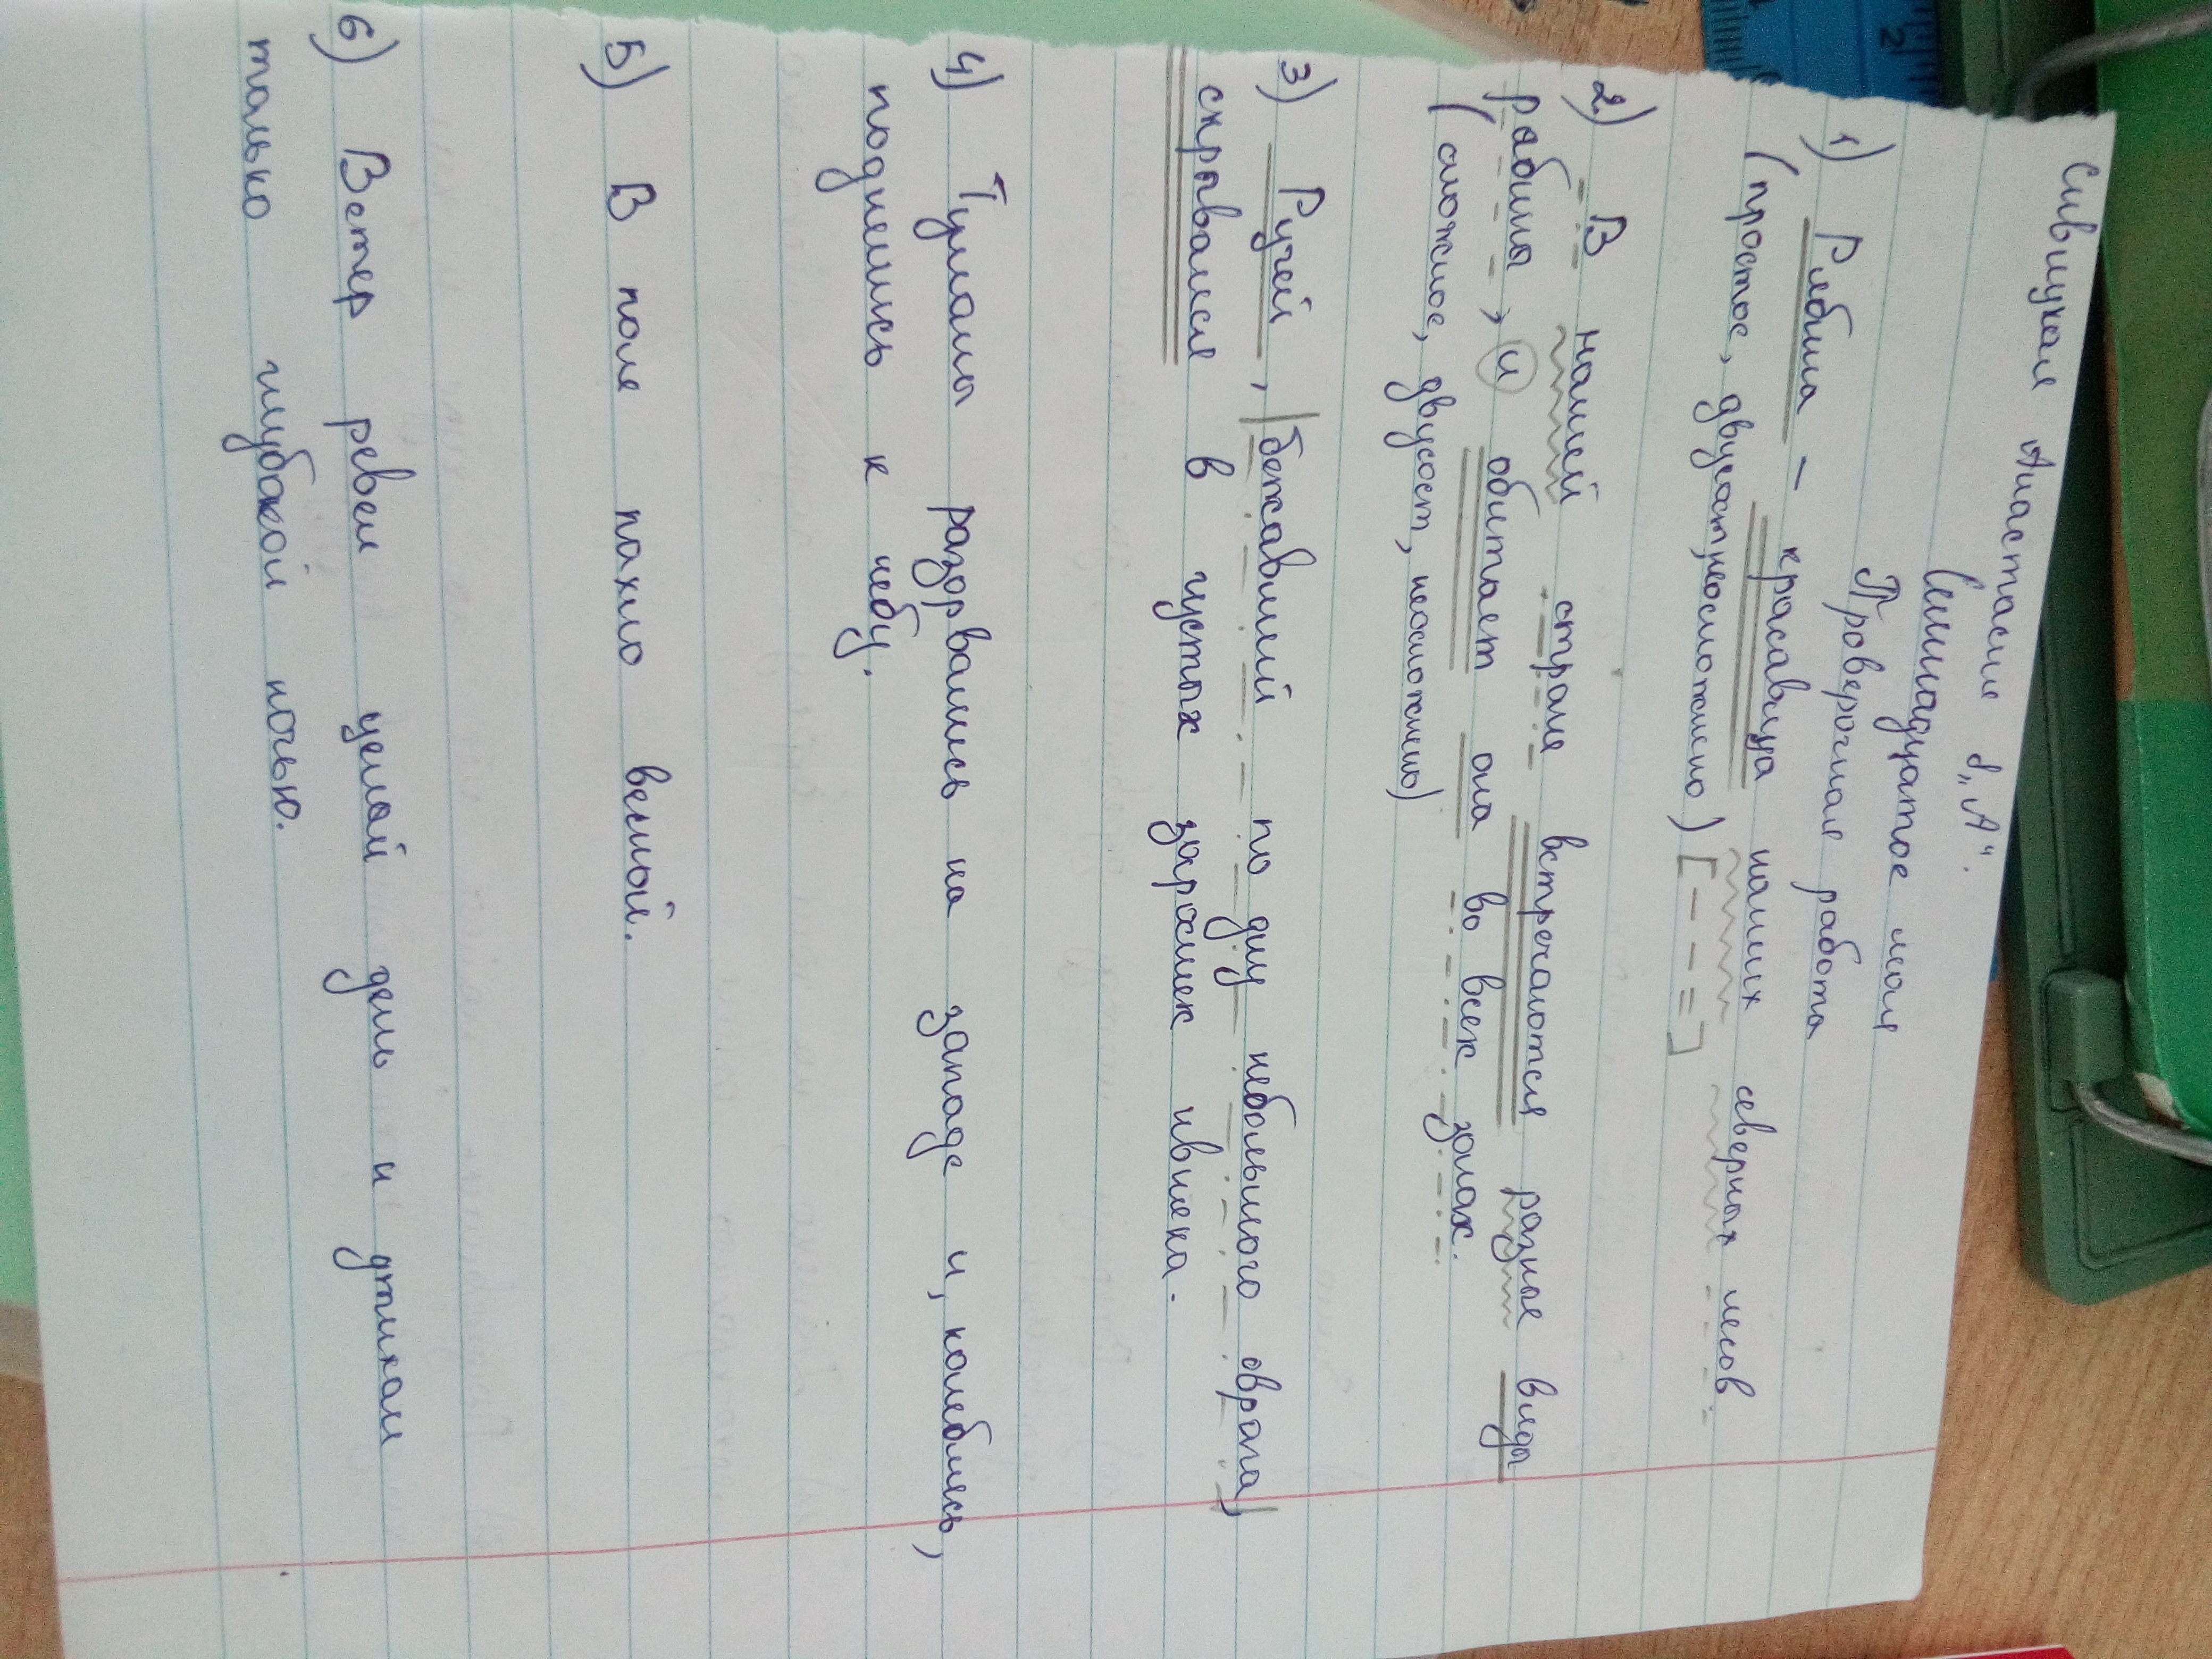 Сивицкая Анастасия 8 „А“.
Семнадцатое мая
Проверочная работа
1) Рябина – красавица наших северных лесов.
(простое, двусост, неосложнено) [- - - =]
2) В нашей стране встречаются разные виды
рябины, и обитает она во всех зонах.
(сложное, двусост, неосложнено)
3) Ручей, бежавший по дну небольшого оврага,
скрывался в густых зарослях ивняка.
4) Туманы разорвались на западе и, колеблясь,
поднялись к небу.
5) В поле пахло весной.
6) Ветер ревел целый день и утихал
только глубокой ночью.
2